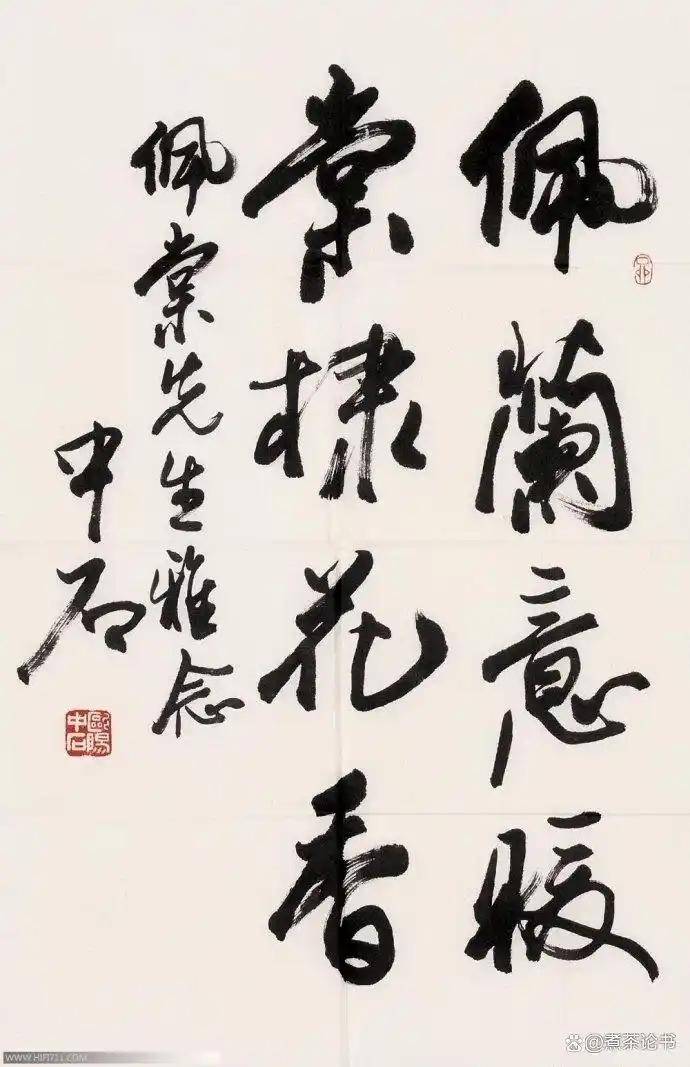 佩蘭意暖
棠棣花香
佩棠先生雅念
中石
歐陽中石
WWW.HIFI711.COM
@煮茶论书